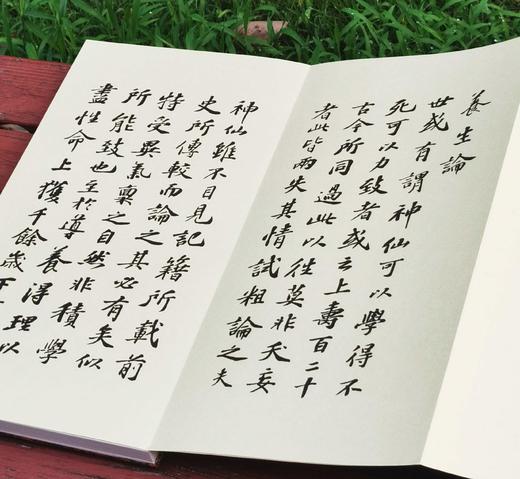 養生論
世或有謂神仙可以學得不
死可以力致者或云上壽百二十
古今所同過此以往莫非夭妄
者此皆兩失其情試粗論之夫
神仙雖不目見記籍所載前
史所傳較而論之其必有矣似
特受異氣稟之自然非積學
所能致也至於導養得理以
盡性命上獲千餘歲